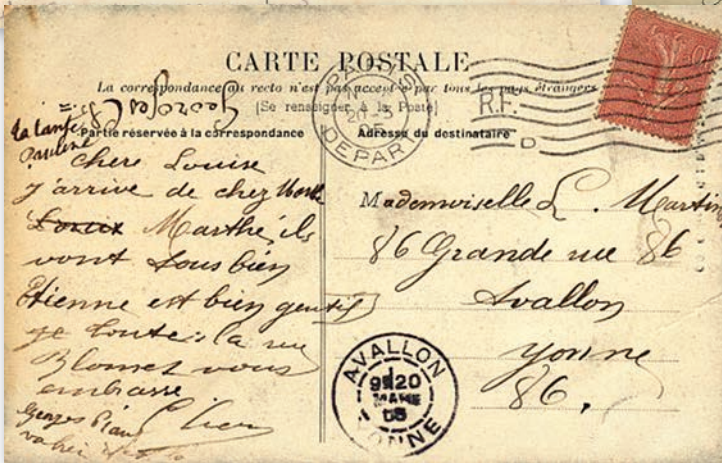 CARTE POSTALE
La correspondance au recto n'est pas acceptée par tous les pays étrangers
[Se renseigner à la Poste]
Partie réservée à la correspondance
Adresse du destinataire
PARIS
DEPART
R.F.
D
10
la tante
Pauline
chere Louise
j'arrive de chez
Marthe, ils
vont tous bien
Etienne est bien gentil
toute la rue
Blomet vous
embrasse
Georges
Mademoiselle L. Martin
86 Grande rue 86
Avallon
Yonne
86.
AVALLON
9 20
MARS
05
YONNE